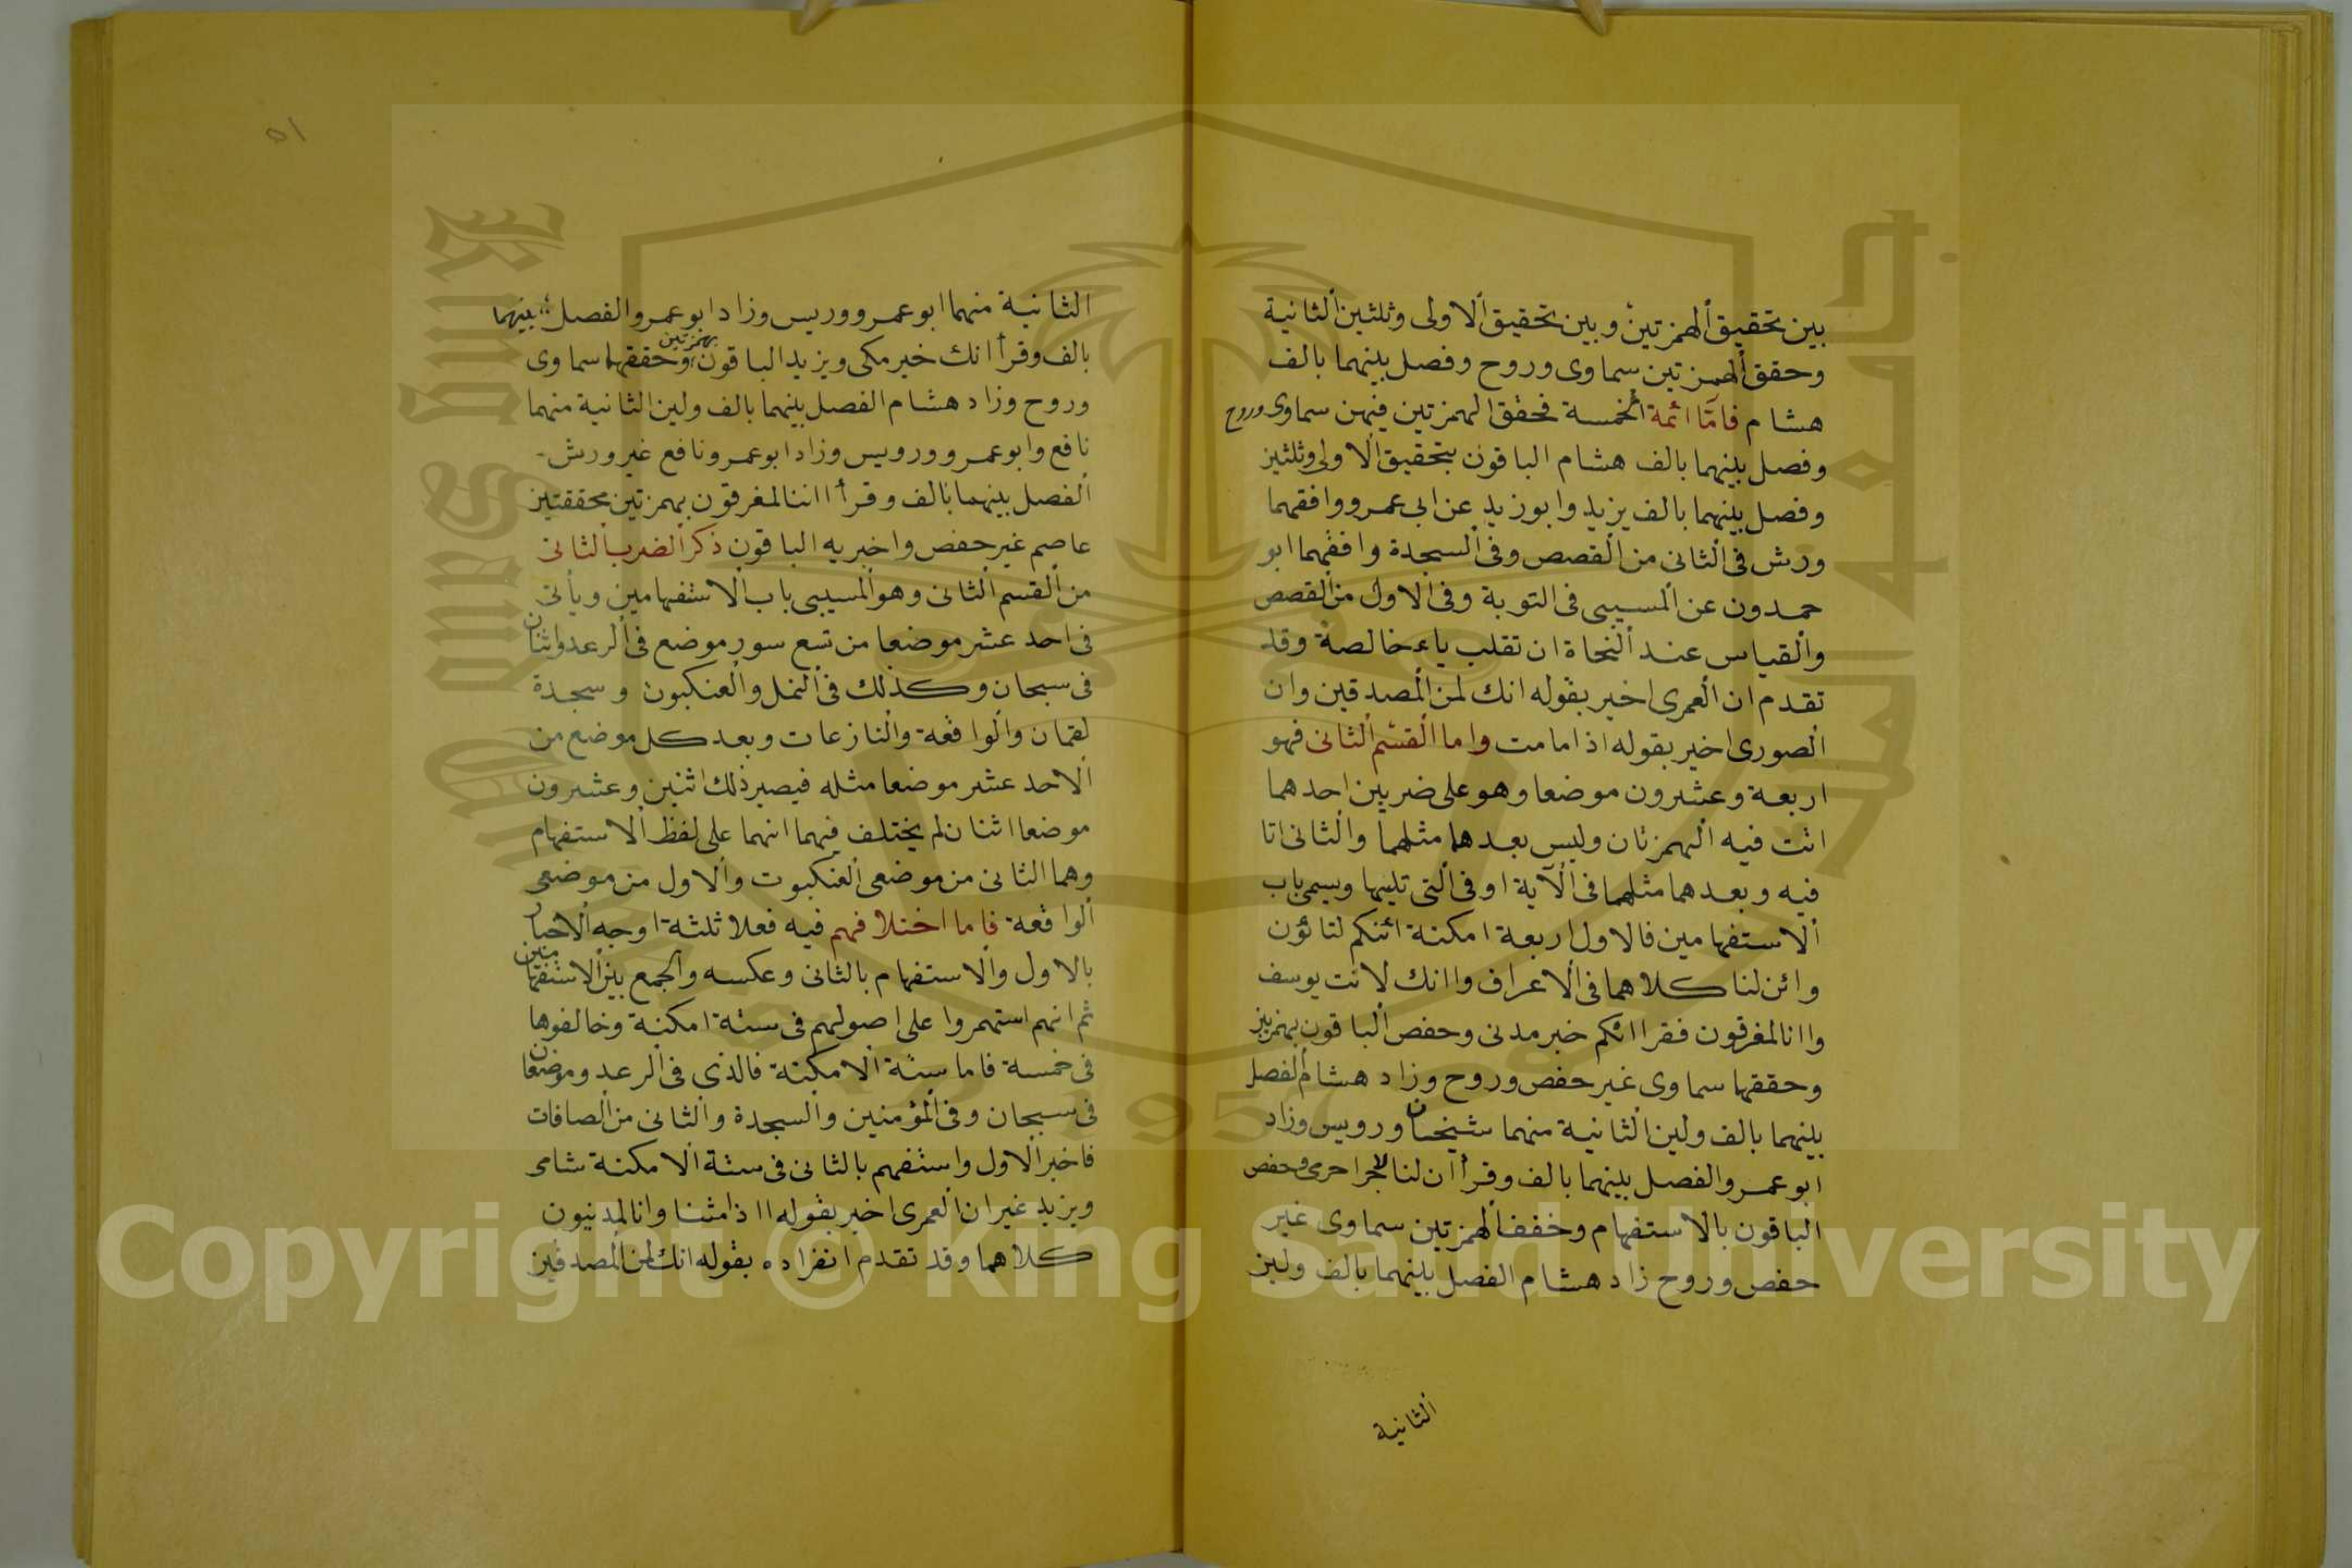 بين تحقيق الهمزتين وبين تحقيق الاولى وثلثين الثانية
وحقق الهمزتين سماوى وروح وفصل بينهما بالف
هشام فامّا ائمة الخمسة فحقق الهمزتين فيهن سماوى وروح
وفصل بينهما بالف هشام الباقون بتحقيق الاولى وثلثين
وفصل بينهما بالف يزيد وابوزيد عن ابى عمرو وافقهما
ورش فى الثانى من القصص وفى السجدة وافقهما ابو
حمدون عن المسيبى فى التوبة وفى الاول من القصص
والقياس عند النحاة ان تقلب ياء خالصة وقد
تقدم ان العمرى اخبر بقوله انك لمن المصدقين وان
الصورى اخبر بقوله اذا مامت واما القسم الثانى فهو
اربعة وعشرون موضعا وهو على ضربين احدهما
اتت فيه الهمزتان وليس بعدهما مثلهما والثانى اتا
فيه وبعدهما مثلهما فى الآية او فى التى تليها ويسمى باب
الاستفهامين فالاول اربعة امكنة ائنكم لتاتون
وائن لنا كلاهما فى الاعراف واانك لانت يوسف
واانا لمغرقون فقرا انكم خبر مدنى وحفص الباقون بهمزتين
وحققها سماوى غير حفص وروح وزاد هشام الفصل
بينهما بالف ولين الثانية منهما شيخان ورويس وزاد
ابو عمرو الفصل بينهما بالف وقرأ ان لنا لاجرا حرمى وحفص
الباقون بالاستفهام وخفف الهمزتين سماوى غير
حفص وروح زاد هشام الفصل بينهما بالف ولين
الثانية
٥١
الثانية منهما ابو عمرو وريس وزاد ابو عمرو الفصل بينهما
بالف وقرأ انك خبر مكى ويزيد الباقون بهمزتين وحققهما سماوى
وروح وزاد هشام الفصل بينهما بالف ولين الثانية منهما
نافع وابو عمرو ورويس وزاد ابو عمرو ونافع غير ورش
الفصل بينهما بالف وقرأ ااننا لمغرقون بهمزتين محققتين
عاصم غير حفص واخبر به الباقون ذكر الضرب الثانى
من القسم الثانى وهو المسيبى باب الاستفهامين ويأتى
فى احد عشر موضعا من تسع سور موضع فى الرعد واثنان
فى سبحان وكذلك فى النمل والعنكبوت وسجدة
لقمان والواقعة والنازعات وبعد كل موضع من
الاحد عشر موضعا مثله فيصير ذلك اثنين وعشرون
موضعا اثنان لم يختلف فيهما انهما على لفظ الاستفهام
وهما الثانى من موضعى العنكبوت والاول من موضعى
الواقعة فاما اختلافهم فيه فعلا ثلثة اوجه الاخبار
بالاول والاستفهام بالثانى وعكسه والجمع بين الاستفهامين
ثم انهم استمروا على اصولهم فى ستة امكنة وخالفوها
فى خمسة فاما ستة الامكنة فالذى فى الرعد وموضعان
فى سبحان وفى المؤمنين والسجدة والثانى من الصافات
فاخبر الاول واستفهم بالثانى فى ستة الامكنة شامى
ويزيد غير ان العمرى اخبر بقوله ااذا متنا وانا لمدينون
كلاهما وقد تقدم انفراده بقوله انك لمن المصدقين
Copyright © King Saud University